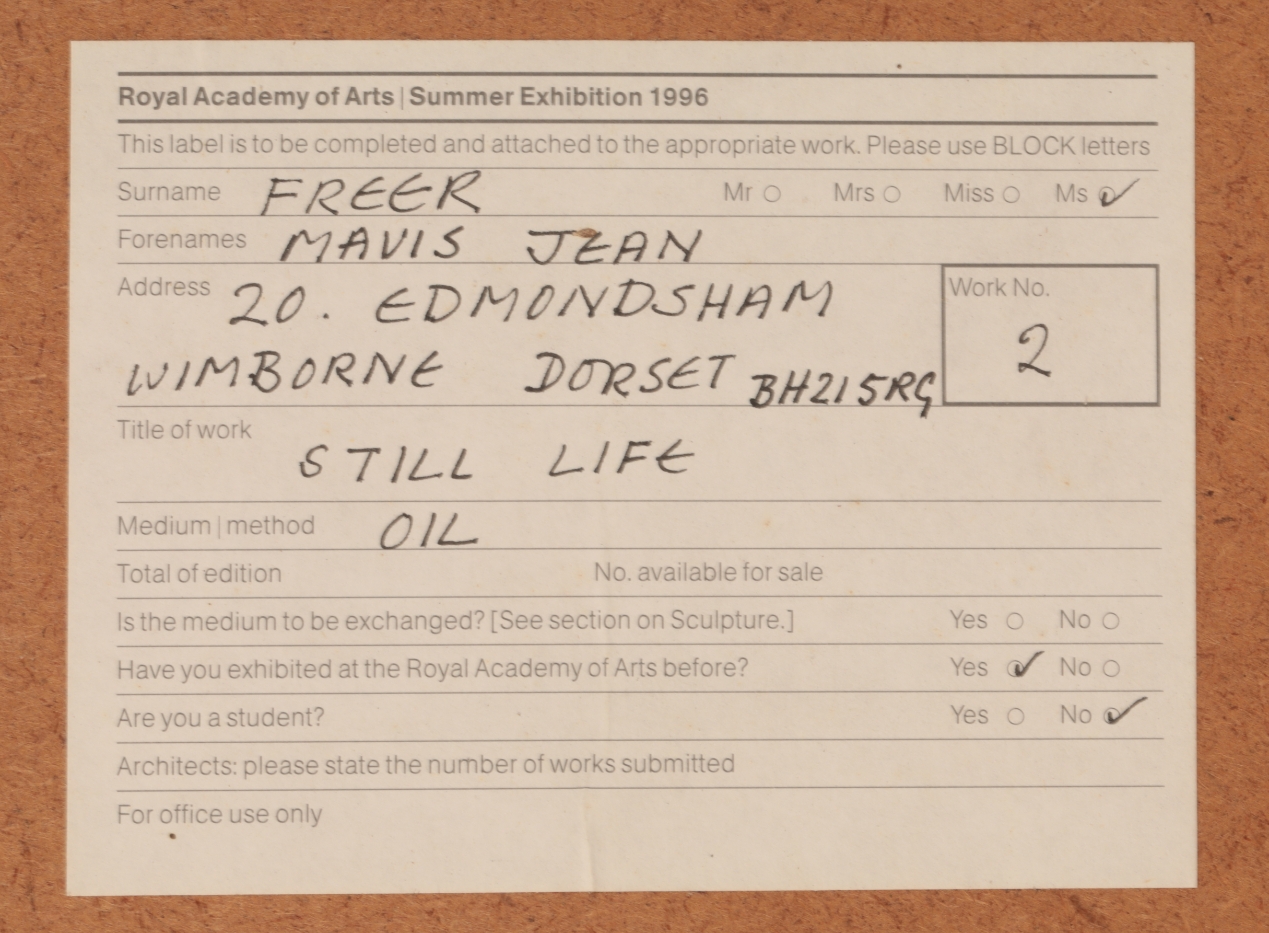 Royal Academy of Arts | Summer Exhibition 1996
This label is to be completed and attached to the appropriate work. Please use BLOCK letters
Surname FREER Mr Mrs Miss Ms ✓
Forenames MAVIS JEAN
Address 20. EDMONDSHAM Work No.
WIMBORNE DORSET BH215RG 2
Title of work
STILL LIFE
Medium | method OIL
Total of edition No. available for sale
Is the medium to be exchanged? [See section on Sculpture.] Yes No
Have you exhibited at the Royal Academy of Arts before? Yes ✓ No
Are you a student? Yes No ✓
Architects: please state the number of works submitted
For office use only